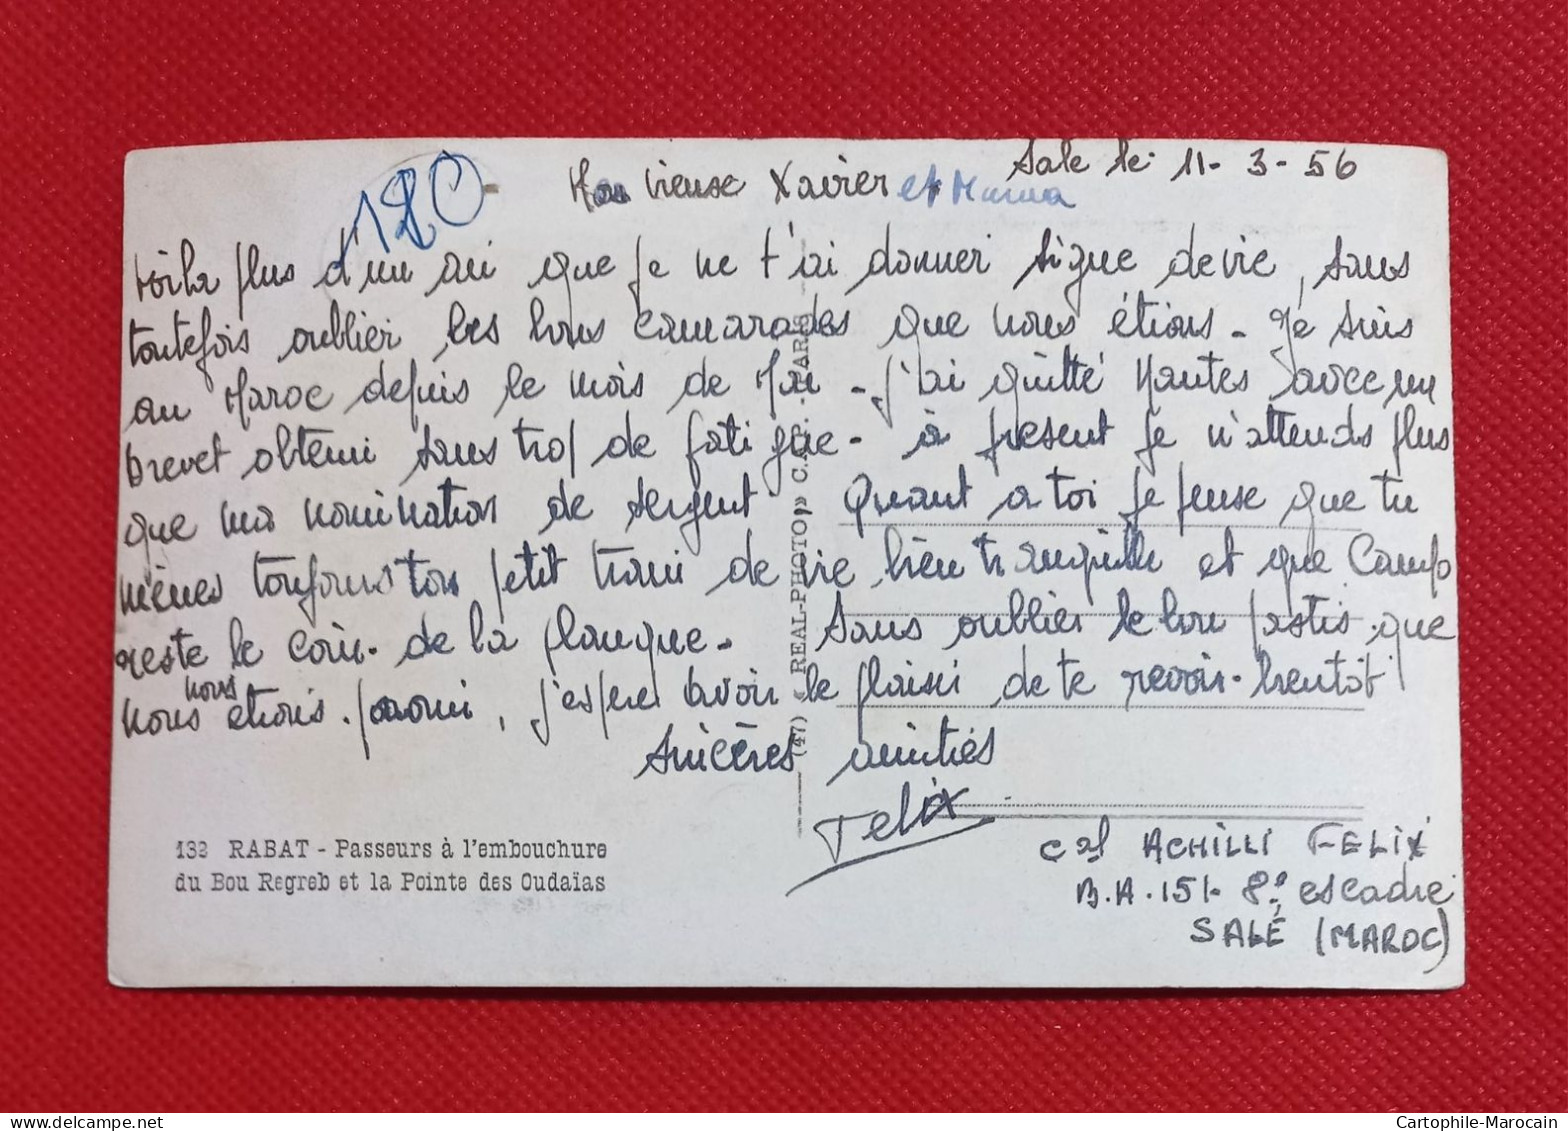 Salé le 11-3-56
180
Mon vieuse Xavier et
voila plus d'un an que je ne t'ai donner signe de vie, sans
toutefois oublier les bons camarades que nous étions - Je suis
au Maroc depuis le mois de Mai - j'ai quitté Nantes avec un
brevet obtenu sans trop de fatigue - à présent je n'attends plus
que ma nomination de sergent - Quant a toi je pense que tu
mènes toujours ton petit train de vie bien tranquille et que Campo
reste le coin de la planque - Sans oublier le bon pastis que
nous
nous étions , j'espere avoir le plaisir de te revoir bientôt
sincères amitiés
Felix
(47) « REAL-PHOTO » C.A.P. - PARIS
133 RABAT - Passeurs à l'embouchure
du Bou Regreb et la Pointe des Oudaïas
cal ACHILLI FELIX
B.A. 151- 8e escadre
SALÉ (MAROC)
Cartophile-Marocain